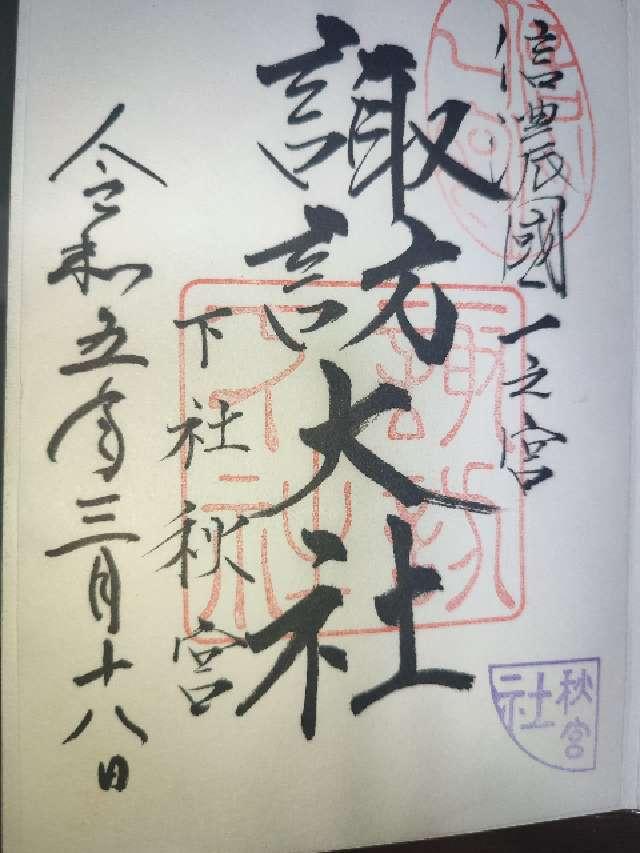 信濃國一之宮
諏訪大社
下社秋宮
令和五年三月十八日
秋宮
社